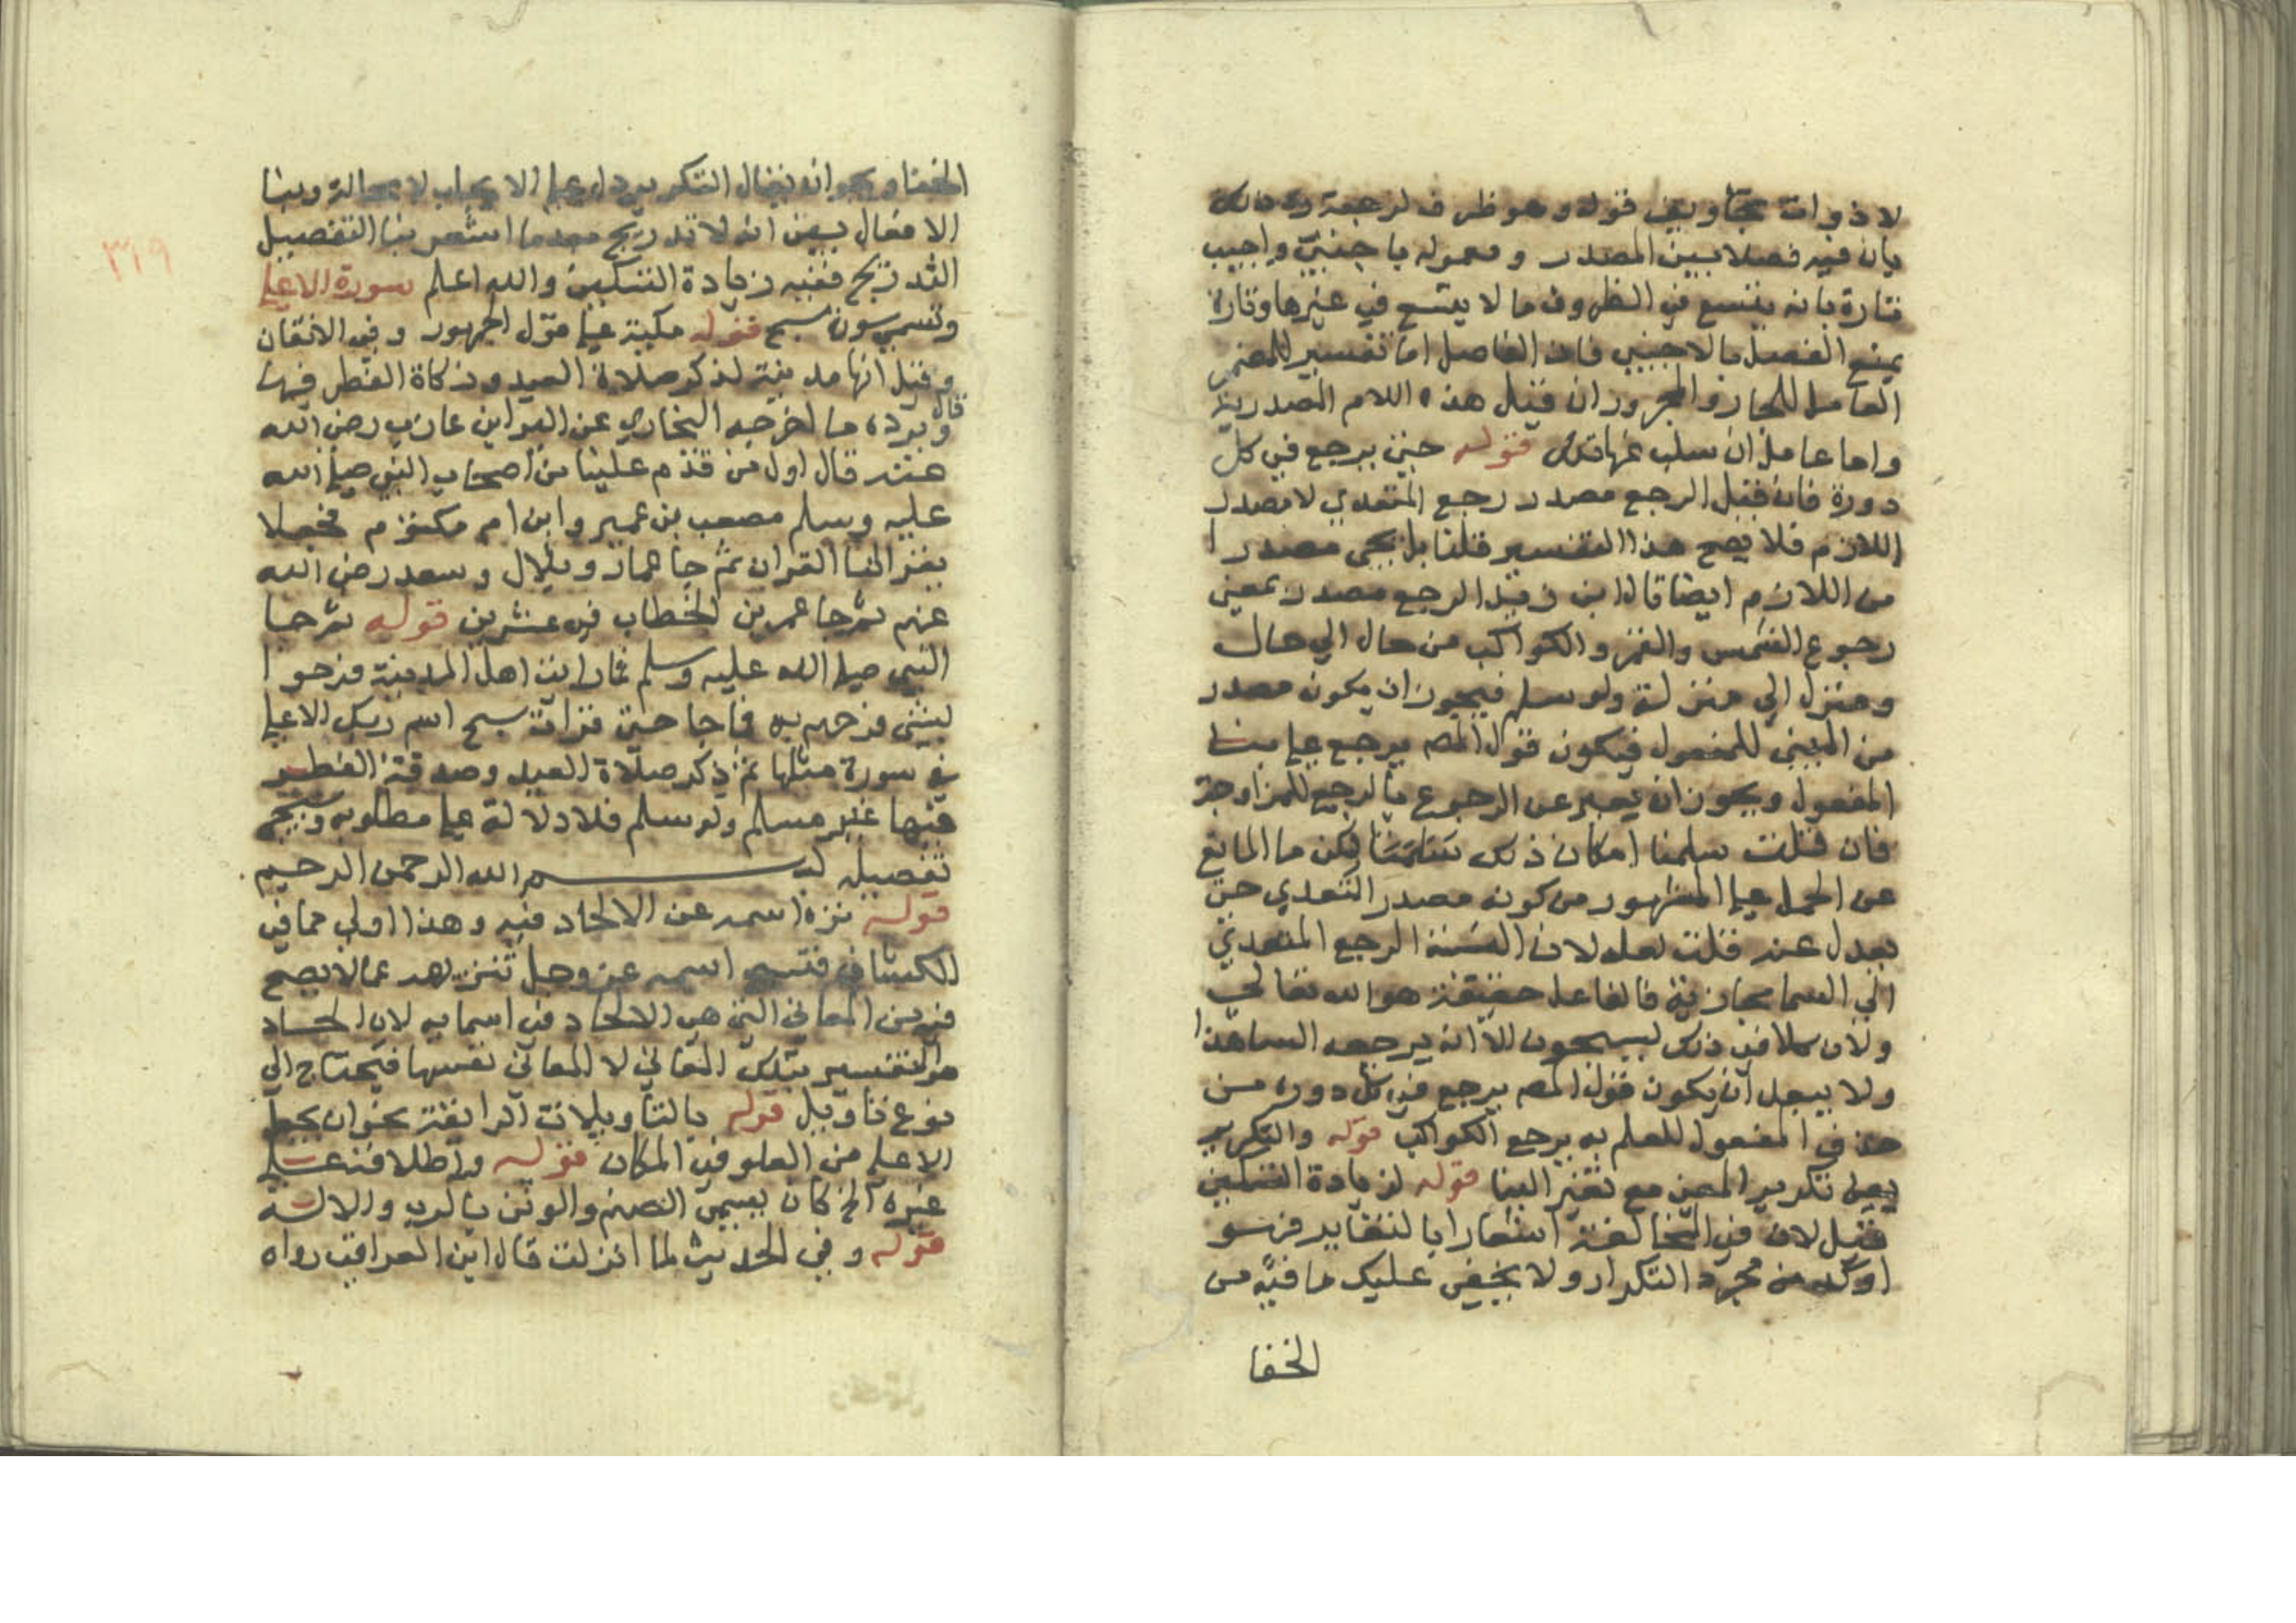 بان فيه فصلا بين المصدر و معموله باجنبي واجيب
فتارة بانه يتسع في الظروف ما لا يتسع في غيرها وتارة
بمنع الفصل بالاجنبي فان الفاصل اما تفسير للمضمر
العامل للجار والمجرور ان قيل هذه اللام المصدرية
واما عامل ان سلب عنها قوله حين يرجع في كل
دورة فان قيل الرجع مصدر رجع المتعدي لا مصدر
اللازم فلا يصح هذا التفسير قلنا بل يجي مصدرا
من اللازم ايضا قال ابن زيد الرجع مصدر بمعني
رجوع الشمس والقمر والكواكب من حال الي حال
ومنزل الي منزلة ولو سلم فيجوز ان يكون مصدر
من المبني للمفعول فيكون قول المص يرجع علي بنا
المفعول ويجوز ان يعبر عن الرجوع بالرجع للمزاوجة
فان قلت سلمنا امكان ذلك لكن ما المانع
عن الحمل علي المشهور من كونه مصدر التعدي حتي
يعدل عنه قلت لعله لان النسبة الرجع المتعدي
الي السما مجازية فالفاعل حقيقة هو الله تعالي
ولان كلا في ذلك يسبحون الا انه يرجعه الساهذا
ولا يبعد ان يكون قول المص يرجع في كل دورة من
حذف المفعول للعلم به يرجع الكواكب قوله والتكرير
يعني تكرير المعني مع تغير البنا قوله لزيادة التسكين
قيل لان في المخالفة اشعارا بالتغاير فهو
اوكد من مجرد التكرار ولا يخفي عليك ما فيه من
الخفا
٣١٩
الخفا وجوابه يقال التكرير دل علي الايجاب لا محالة وبنا
الافعال بين انه لا تدريج بعدما اشعر بنا التفصيل
التدريج ففيه زيادة التسكين والله اعلم سورة الاعلي
وتسمي سورة سبح قوله مكية علي قول الجمهور وفي الاتقان
وقيل انها مدينة لذكر صلاة العيد وزكاة الفطر فيها
قال ويرده ما اخرجه البخاري عن البرا بن عازب رضي الله
عنه قال اول من قدم علينا من اصحاب النبي صلي الله
عليه وسلم مصعب بن عمير وابن ام مكتوم فجعلا
يقراننا القران ثم جا عمار وبلال وسعد رضي الله
عنهم ثم جا عمر بن الخطاب في عشرين قوله ثم جا
النبي صلي الله عليه وسلم فما رايت اهل المدينة فرحوا
لبشي فرحهم به فما جا حتي قرات سبح اسم ربك الاعلي
في سورة مثلها ثم ذكر صلاة العيد وصدقة الفطر
فيها غير مسلم ولو سلم فلا دلالة علي مطلوبه وسيجي
تفصيله بسم الله الرحمن الرحيم
قوله نزه اسمه عن الالحاد فيه وهذا اولي مما في
الكشاف فتسبيح اسمه عز وجل تنزيهه عما لا يصح
فيه من المعاني التي هي الالحاد في اسمايه لان الحاد
هو التفسير بتلك المعاني لا المعاني نفسها فيحتاج الي
نوع تاويل قوله بالتاويلات الزايغة نحو ان يجعل
الاعلي من العلو في المكان قوله واطلاقه علي
غيره الخ كان يسمي الصنم والوثن بالرب والاله
قوله وفي الحديث لما انزلت قال ابن العراقي رواه